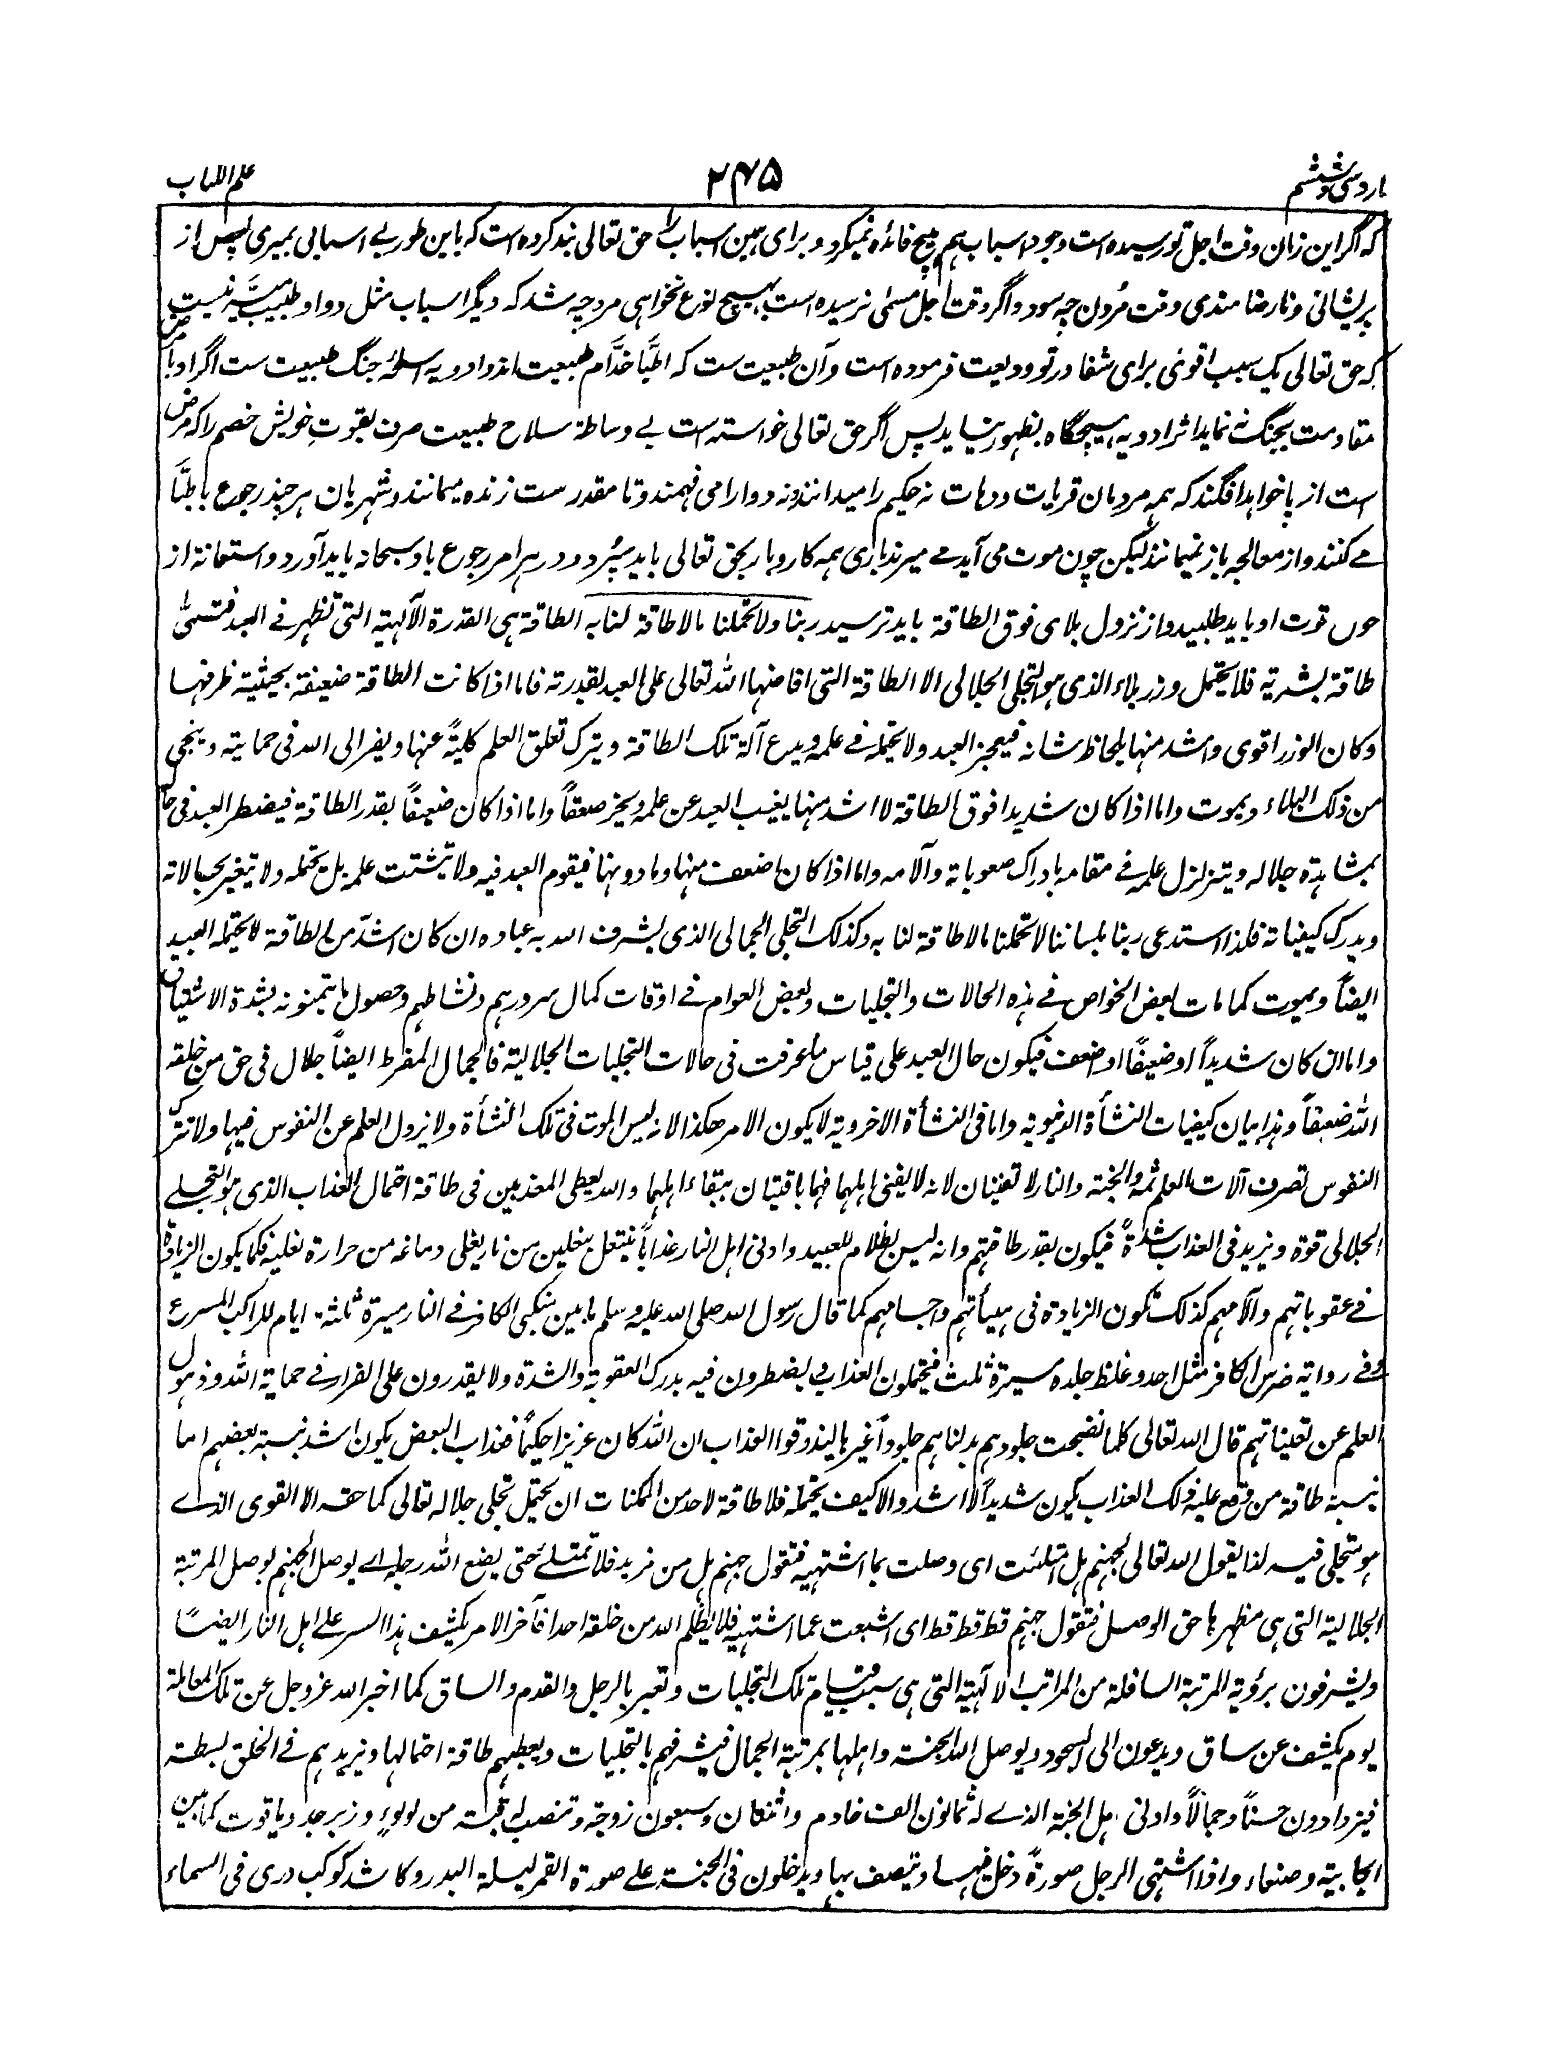 وارد سی و ششم ۲۴۵ علم الکتاب
که اگر این زمان وقت اجل تو رسیده است وجود اسباب هم هیچ فائده نمیکرد و برای همین اسباب را حق تعالی بند کرده است که باین طور بے اسبابی بمیری پس از
پریشانی و نارضا مندی وقت مُردن چه سود و اگر وقت اجل مسمّٰی نرسیده است بهیچ نوع نخواهی مرد چه شد که دیگر اسباب مثل دوا و طبیب میسّر نیست
که حق تعالی یک سبب اقوی برای شفا در تو ودیعت فرموده است و آن طبیعت ست که اطبّا خدّام طبیعت اند و ادویه اسلحۀ جنگ طبیعت ست اگر او با مرض
مقاومت بجنگ نه نماید اثر ادویه هیچگاه بظهور نیاید پس اگر حق تعالی خواسته است بے وساطۀ سلاح طبیعت صرف بقوتِ خویش خصم را که مرض
است از پا خواهد افگند که همه مردمان قریات و دهات نه حکیم را میدانند و نه دوا را می فهمند و تا مقدر ست زنده میمانند و شهریان هر چند رجوع باطبّا
مے کنند و از معالجه باز نمیمانند لیکن چون موت می آید مے میرند باری همه کار و بار بحق تعالی باید سپُرد و در هر امر رجوع باو سبحانه باید آورد و استعانة از
حول قوت او باید طلبید و از نزول بلای فوق الطاقة باید ترسید ربنا ولا تحملنا ما لا طاقة لنا به الطاقة هی القدرة الآلهیة التی تظهر فے العبد فتسمّٰی
طاقة بشریّة فلا یحتمل وزر بلاء الذی هو التجلی الجلالی الا الطاقة التی افاضها الله تعالی علی العبد لقدرته فاما اذا کانت الطاقة ضعیفة بحیثیة ظرفها
وکان الوزر اقوی واشد منها بلحاظ شانه فیعجز العبد ولا یحمله فے علمه ویدع آلة تلک الطاقة ویترک تعلق العلم کلیةً عنها ویفر الی الله فی حمایته وینجی
من ذلک البلاء ویموت واما اذا کان شدیدا فوق الطاقة لا اشد منها یغیب العبد عن علمه ویخر صعقاً واما اذا کان ضعیفاً بقدر الطاقة فیضطر العبد فی حاله
بمشاهدة جلاله ویتزلزل علمه فے مقامه بادراک صعوباته وآلامه واما اذا کان اضعف منها وما دونها فیقوم العبد فیه ولا یتشتت علمه بل یحتمله ولا یتغیر بحالاته
ویدرک کیفیاته فلذا استدعی ربنا بلساننا لا تحملنا ما لا طاقة لنا به وکذلک التجلی الجمالی الذی یشرف الله به عباده ان کان اشد من الطاقة لا یحتمله العبید
ایضاً ویموت کما مات بعض الخواص فے هذه الحالات والتجلیات وبعض العوام فے اوقات کمال سرورهم ونشاطهم وحصول ما یتمنونه بشدة الاشتیاق
واما ان کان شدیداً او ضعیفاً او ضعف فیکون حال العبد علی قیاس ما عرفت فی حالات التجلیات الجلالیة فالجمال المفرط ایضاً جلال فی حق من خلقه
الله ضعیفاً وهذا بیان کیفیات النشأة الدنیویة واما فی النشأة الاخرویة لا یکون الامر هکذا لانه لیس الموت فی تلک النشأة ولا یزول العلم عن النفوس فیها ولا تترک
النفوس تصرف آلات العلم ثمه والجنة والنار لا تفنیان لانه لا یفنی اهلهما فهما باقیتان ببقاء اهلهما والله یعطی المعذبین فی طاقة احتمال العذاب الذی هو التجلے
الجلالی قوة ویزید فی العذاب شدةً فیکون بقدر طاقتهم وانه لیس بظلام للعبید وادنی اهل النار عذاباً ینتعل بنعلین من نار یغلی دماغه من حرارة نعلیه فکما یکون الزیادة
فے عقوباتهم وآلامهم کذلک تکون الزیادة فی هیأتهم واجسامهم کما قال رسول الله صلی الله علیه وسلم ما بین منکبی الکافر فے النار مسیرة ثلثة ایام للراکب المسرع
وفے روایة ضرس الکافر مثل احد وغلظ جلده مسیرة ثلث فیحتملون العذاب ویضطرون فیه بدرک العقوبة والشدة ولا یقدرون علی الفرار فے حمایة الله وذهول
العلم عن تعیناتهم قال الله تعالی کلما نضجت جلودهم بدلناهم جلوداً غیرها لیذوقوا العذاب ان الله کان عزیزاً حکیماً فعذاب البعض یکون اشد نسبة بعضهم اما
نسبة طاقة من وقع علیه ذلک العذاب یکون شدیداً لا اشد والا کیف یحتمله فلا طاقة لاحد من الممکنات ان یحتمل تجلی جلاله تعالی کما حقه الا القوی الذے
هو متجلی فیه لذا یقول الله تعالی لجهنم هل امتلئت ای وصلت بما اشتهیه فتقول جهنم هل من مزید فلا تمتلئ حتی یضع الله رجله اے یوصل الجهنم بوصل المرتبة
الجلالیة التی هی مظهرها حق الوصل فتقول جهنم قط قط قط ای اشبعت عما اشتهیه فلا یظلم الله من خلقه احداً فآخر الامر یکشف هذا السر علے اهل النار ایضاً
ویشرفون برؤیة المرتبة السافلة من المراتب الآلهیة التی هی سبب قیام تلک التجلیات وتعبر بالرجل والقدم والساق کما اخبر الله عز وجل عن تلک المعاملة
یوم یکشف عن ساق ویدعون الی السجود ویوصل الله الجنة واهلها بمرتبة الجمال فیشرفهم بالتجلیات ویعطیهم طاقة احتمالها ویزیدهم فے الخلق بسطة
فیزدادون حسناً وجمالاً وادنی اهل الجنة الذے له ثمانون الف خادم واثنتان وسبعون زوجة وتنصب له قبة من لولوءٍ وزبرجد ویاقوت کما بین
الجابیة وصنعاء واذا اشتهی الرجل صورةً دخل فیها ویتصف بها ویدخلون فی الجنة علے صورة القمر لیلة البدر وکاشد کوکب دری فی السماء